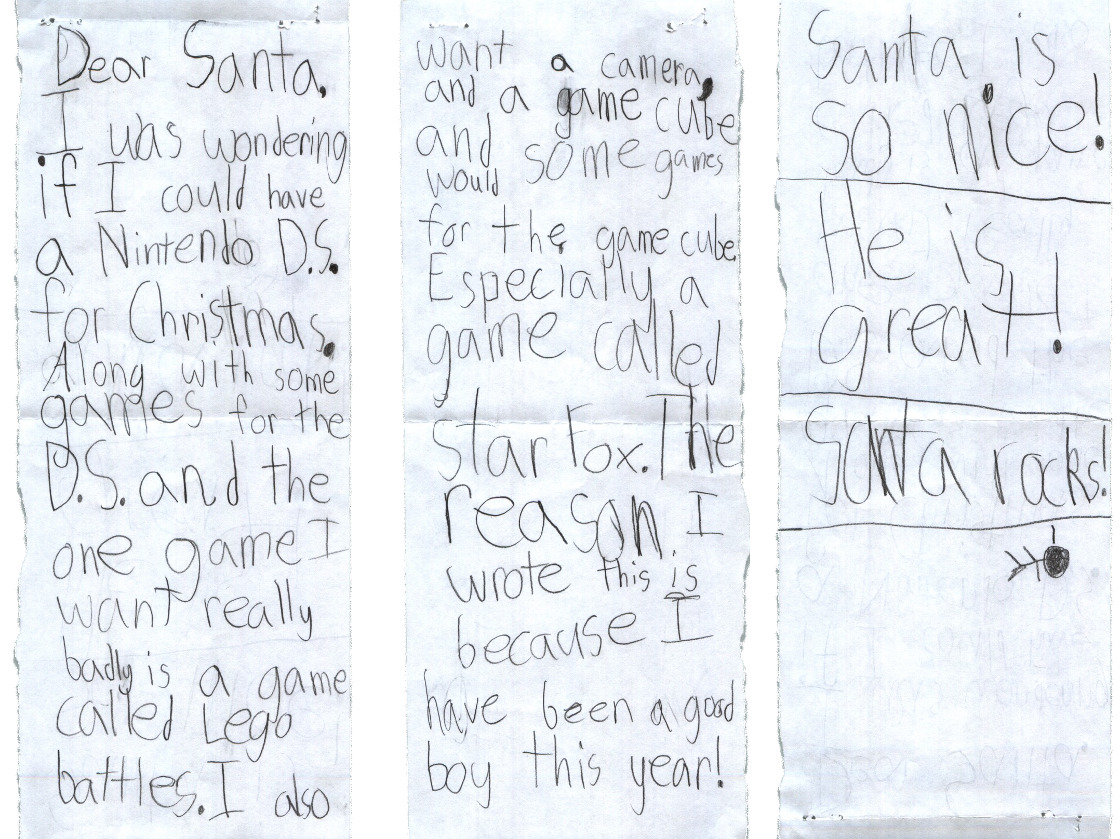 Dear Santa,
I was wondering
if I could have
a Nintendo D.S.
for Christmas.
Along with some
games for the
D.S. and the
one game I
want really
badly is a game
called Lego
battles. I also
want a camera,
and a game cube
and some games
would
for the game cube.
Especially a
game called
star Fox. The
reason I
wrote this is
because I
have been a good
boy this year!
Santa is
so nice!
He is
great!
Santa rocks!